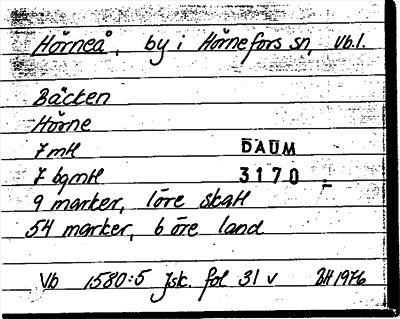 Hörneå, by i Hörnefors sn, Vb.l.
Bäcken
Hörne
7 mtl DAUM
7 bgmtl 3170
9 marker, 1 öre skatt
54 marker, 6 öre land
Vb 1580:5 Jsk. fol 31 v BH 1976